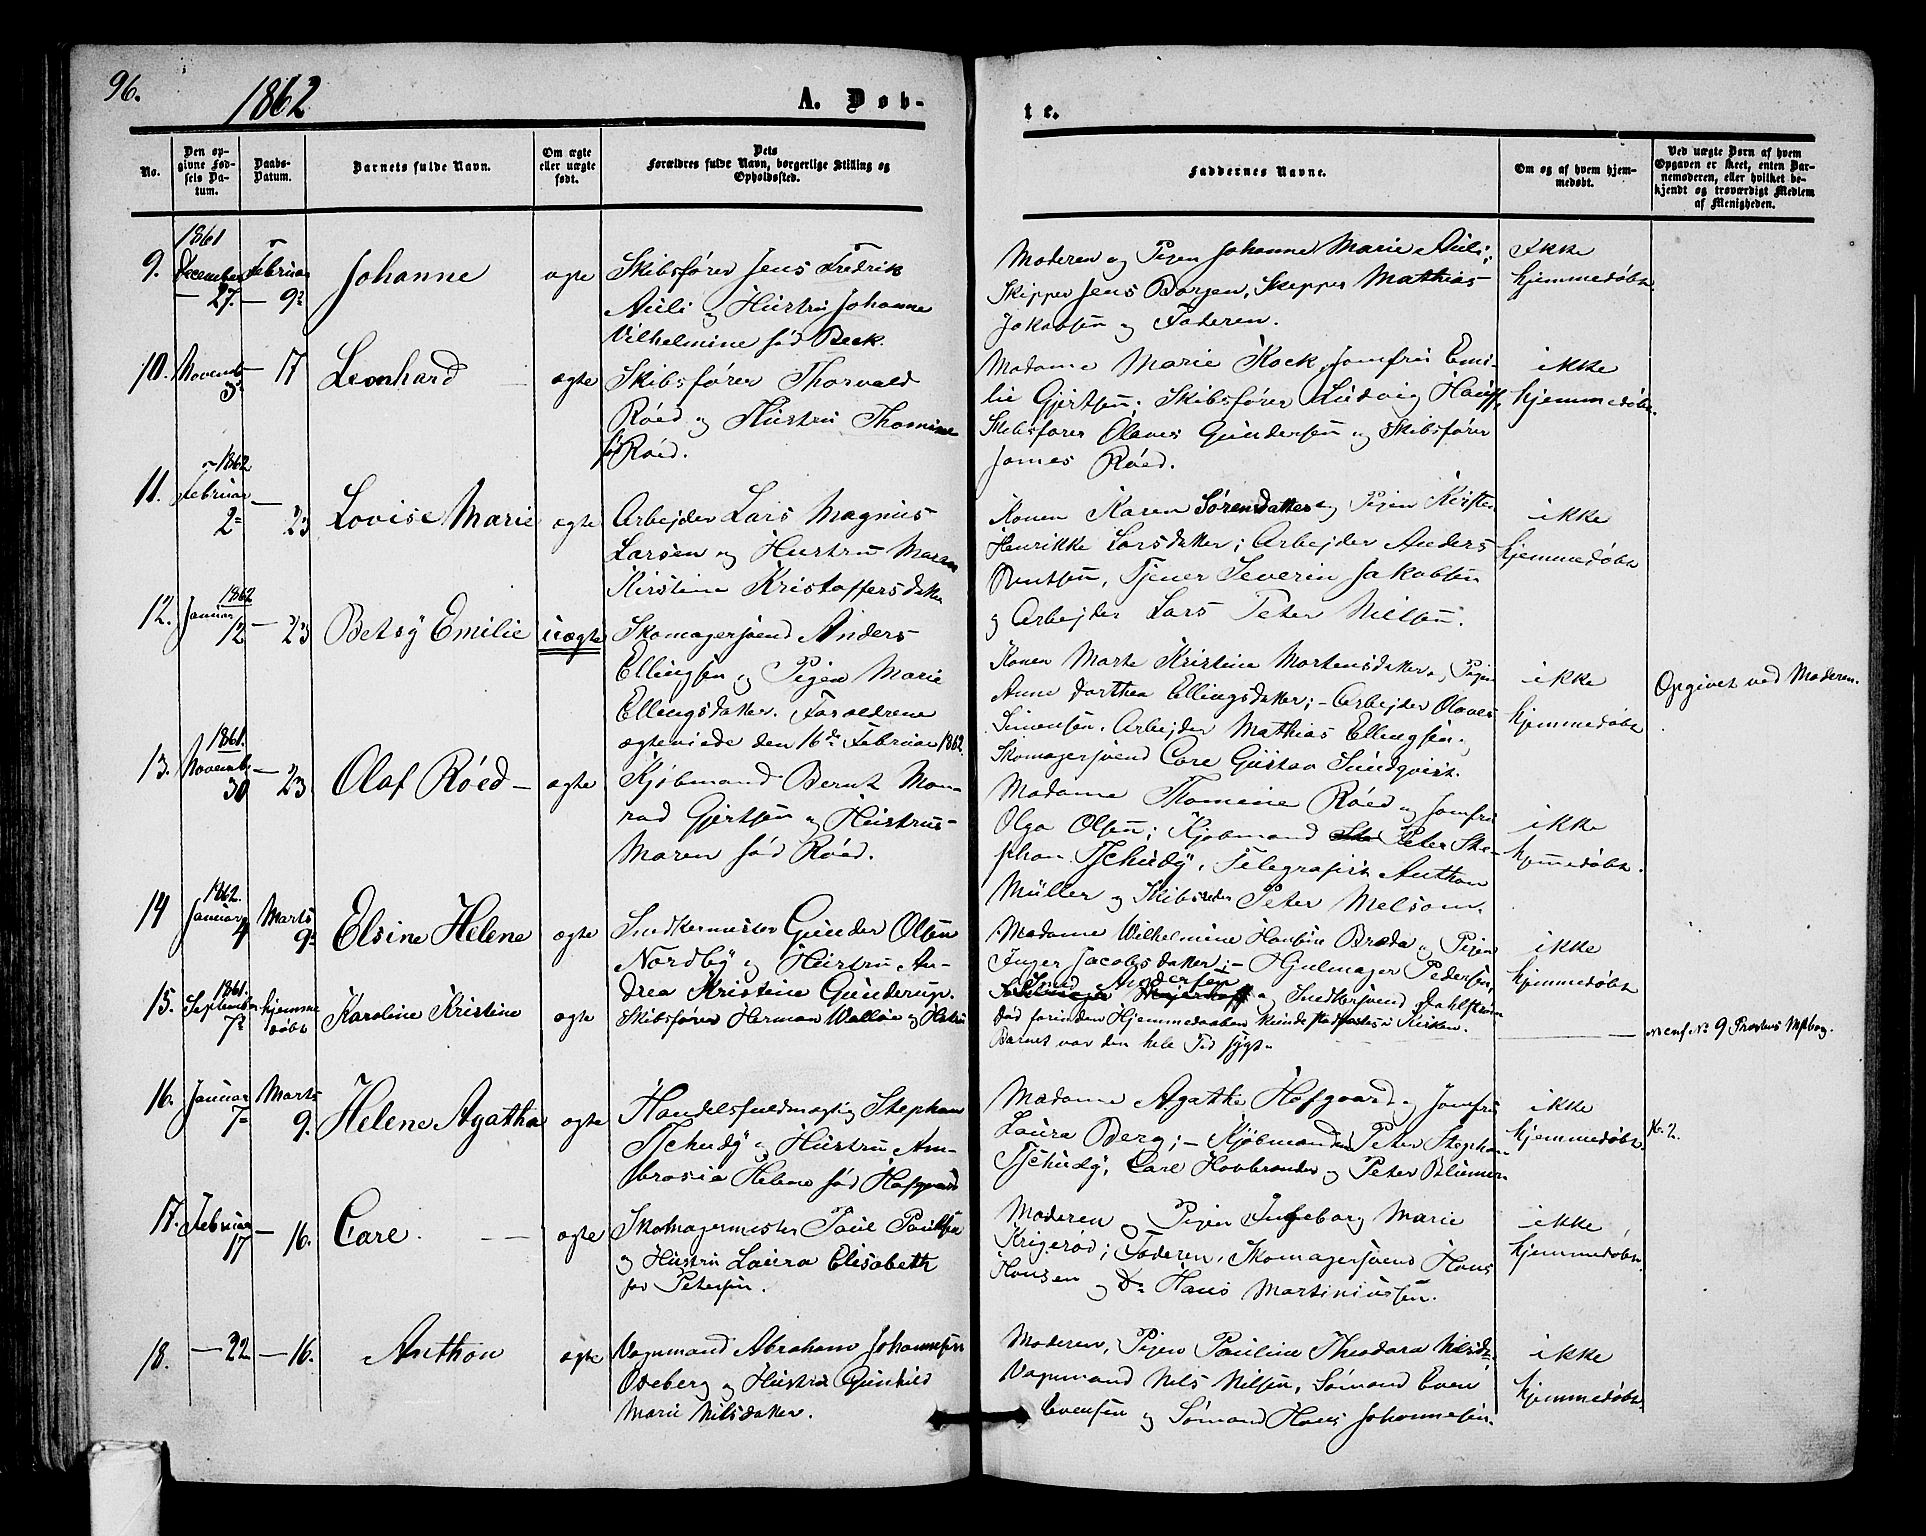 96.
1862
A. Døb-
te.
No.
Den opgivne Fødsels Datum.
Daabs-Datum.
Barnets fulde Navn.
Om ægte eller uægte født.
Dets Forældres fulde Navn, borgerlige Stilling og Opholdssted.
Faddernes Navne.
Om og af hvem hjemmedøbt.
Ved uægte Børn af hvem Opgaven er skeet, enten Barnemoderen, eller hvilket bekjendt og troværdigt Medlem af Menigheden.
1861
9. December 27. Februar 9de Johanne ægte
Skibsfører Jens Fredrik
Auli og Hustru Johanne
Vilhelmine fød Beck.
Moderen og Pigen Johanne Marie Auli;
Skipper Jens Borgen, Skipper Mathias
Jakobsen og Faderen.
Ikke
hjemmedøbt
10. Novemb 3 — 17 Leonhard — ægte
Skibsfører Thorvald
Röed og Hustru Thomine
fø Röed.
Madame Marie Kock, Jomfru Emi-
lie Gjertsen; Skibsfører Ludvig Hauff,
Skibsfører Olaves Gundersen og Skibsfører
James Röed.
ikke
hjemmedøbt.
1862
11. Februar 2 — 23 Lovise Marie ægte
Arbejder Lars Magnus
Larsen og Hustru Maren
Kirstine Kristoffersdatter
Konen Karen Sørensdatter og Pigen Kirsten
Henrikke Larsdatter; Arbejder Anders
Berntsen, Tjener Severin Jakobsen
og Arbejder Lars Peter Nielsen.
ikke
hjemmedøbt
1862
12. Januar 12 — 23 Betsy Emilie uægte
Skomagersvend Anders
Ellingsen og Pigen Marie
Ellingsdatter. Forældrene
ægteviede den 16de Februar 1862.
Konen Marte Kristine Mortensdatter, Pigen
Anne Dorthea Ellingsdatter; — Arbejder Olaves
Simensen, Arbejder Mathias Ellingsen,
Skomagersvend Carl Gustav Sundqvist.
ikke
hjemmedøbt
Opgivet ved Moderen.
1861.
13. Novembr 30 — 23 Olaf Röed — ægte
Kjøbmand Bernt Mon-
rad Gjertsen og Hustrue
Maren fød Röed.
Madame Thomine Röed og Jomfru
Olga Olsen; Kjøbmand Peter Ste-
phan Tschudy, Telegrafist Anthon
Müller og Skibsreder Peter Melsom.
ikke
hjemmedøbt.
1862.
14 Januar 4 Marts 9de Elsine Helene ægte
Snedkermester Gunder Olsen
Nordby og Hustru An-
drea Kristine Gunderup.
Madame Wilhelmine Hansine Breda og Pigen
Inger Jacobsdatter; — Hjulmager Pedersen,
Andersen og Snedkersvend Dahlstrøm
ikke
hjemmedøbt
1861.
15. September 7de hjemme
døbt Karoline Kristine ægte
Skibsfører Herman Walløe og Hustru
død forinden Hjemmedaaben kunde stadfæstes i Kirken.
Barnet var den hele Tid sygt.
No 9
16. Januar 7de Marts 9. Helene Agatha ægte
Handelsfuldmægtig Stephan
Tschudy og Hustru Am-
brosia Helene fød Hofgaard
Madame Agathe Hofgaard og Jomfru
Laura Berg; — Kjøbmændene Peter Stephan
Tschudy, Carl Hovbrender og Peter Blumer.
ikke
hjemmedøbt
K. 2.
17. Februar 17 — 16. Carl. — ægte
Skomagermester Paul Paulsen
og Hustru Laura Elisabeth
fød Petersen.
Moderen og Pigen Ingeborg Marie
Krigerød; Faderen, Skomagersvend Hans
Hansen og Do Hans Martiniussen.
ikke
hjemmedøbt.
18. — 22 — 16. Anthon ægte
Vognmand Abraham Johannesen
Odeberg og Hustru Gunhild
Marie Nilsdatter.
Moderen, Pigen Pauline Theodora Nilsdr.
Vognmand Nils Nilsen, Sømand Even
Evensen og Sømand Hans Johannesen.
ikke
hjemmedøbt